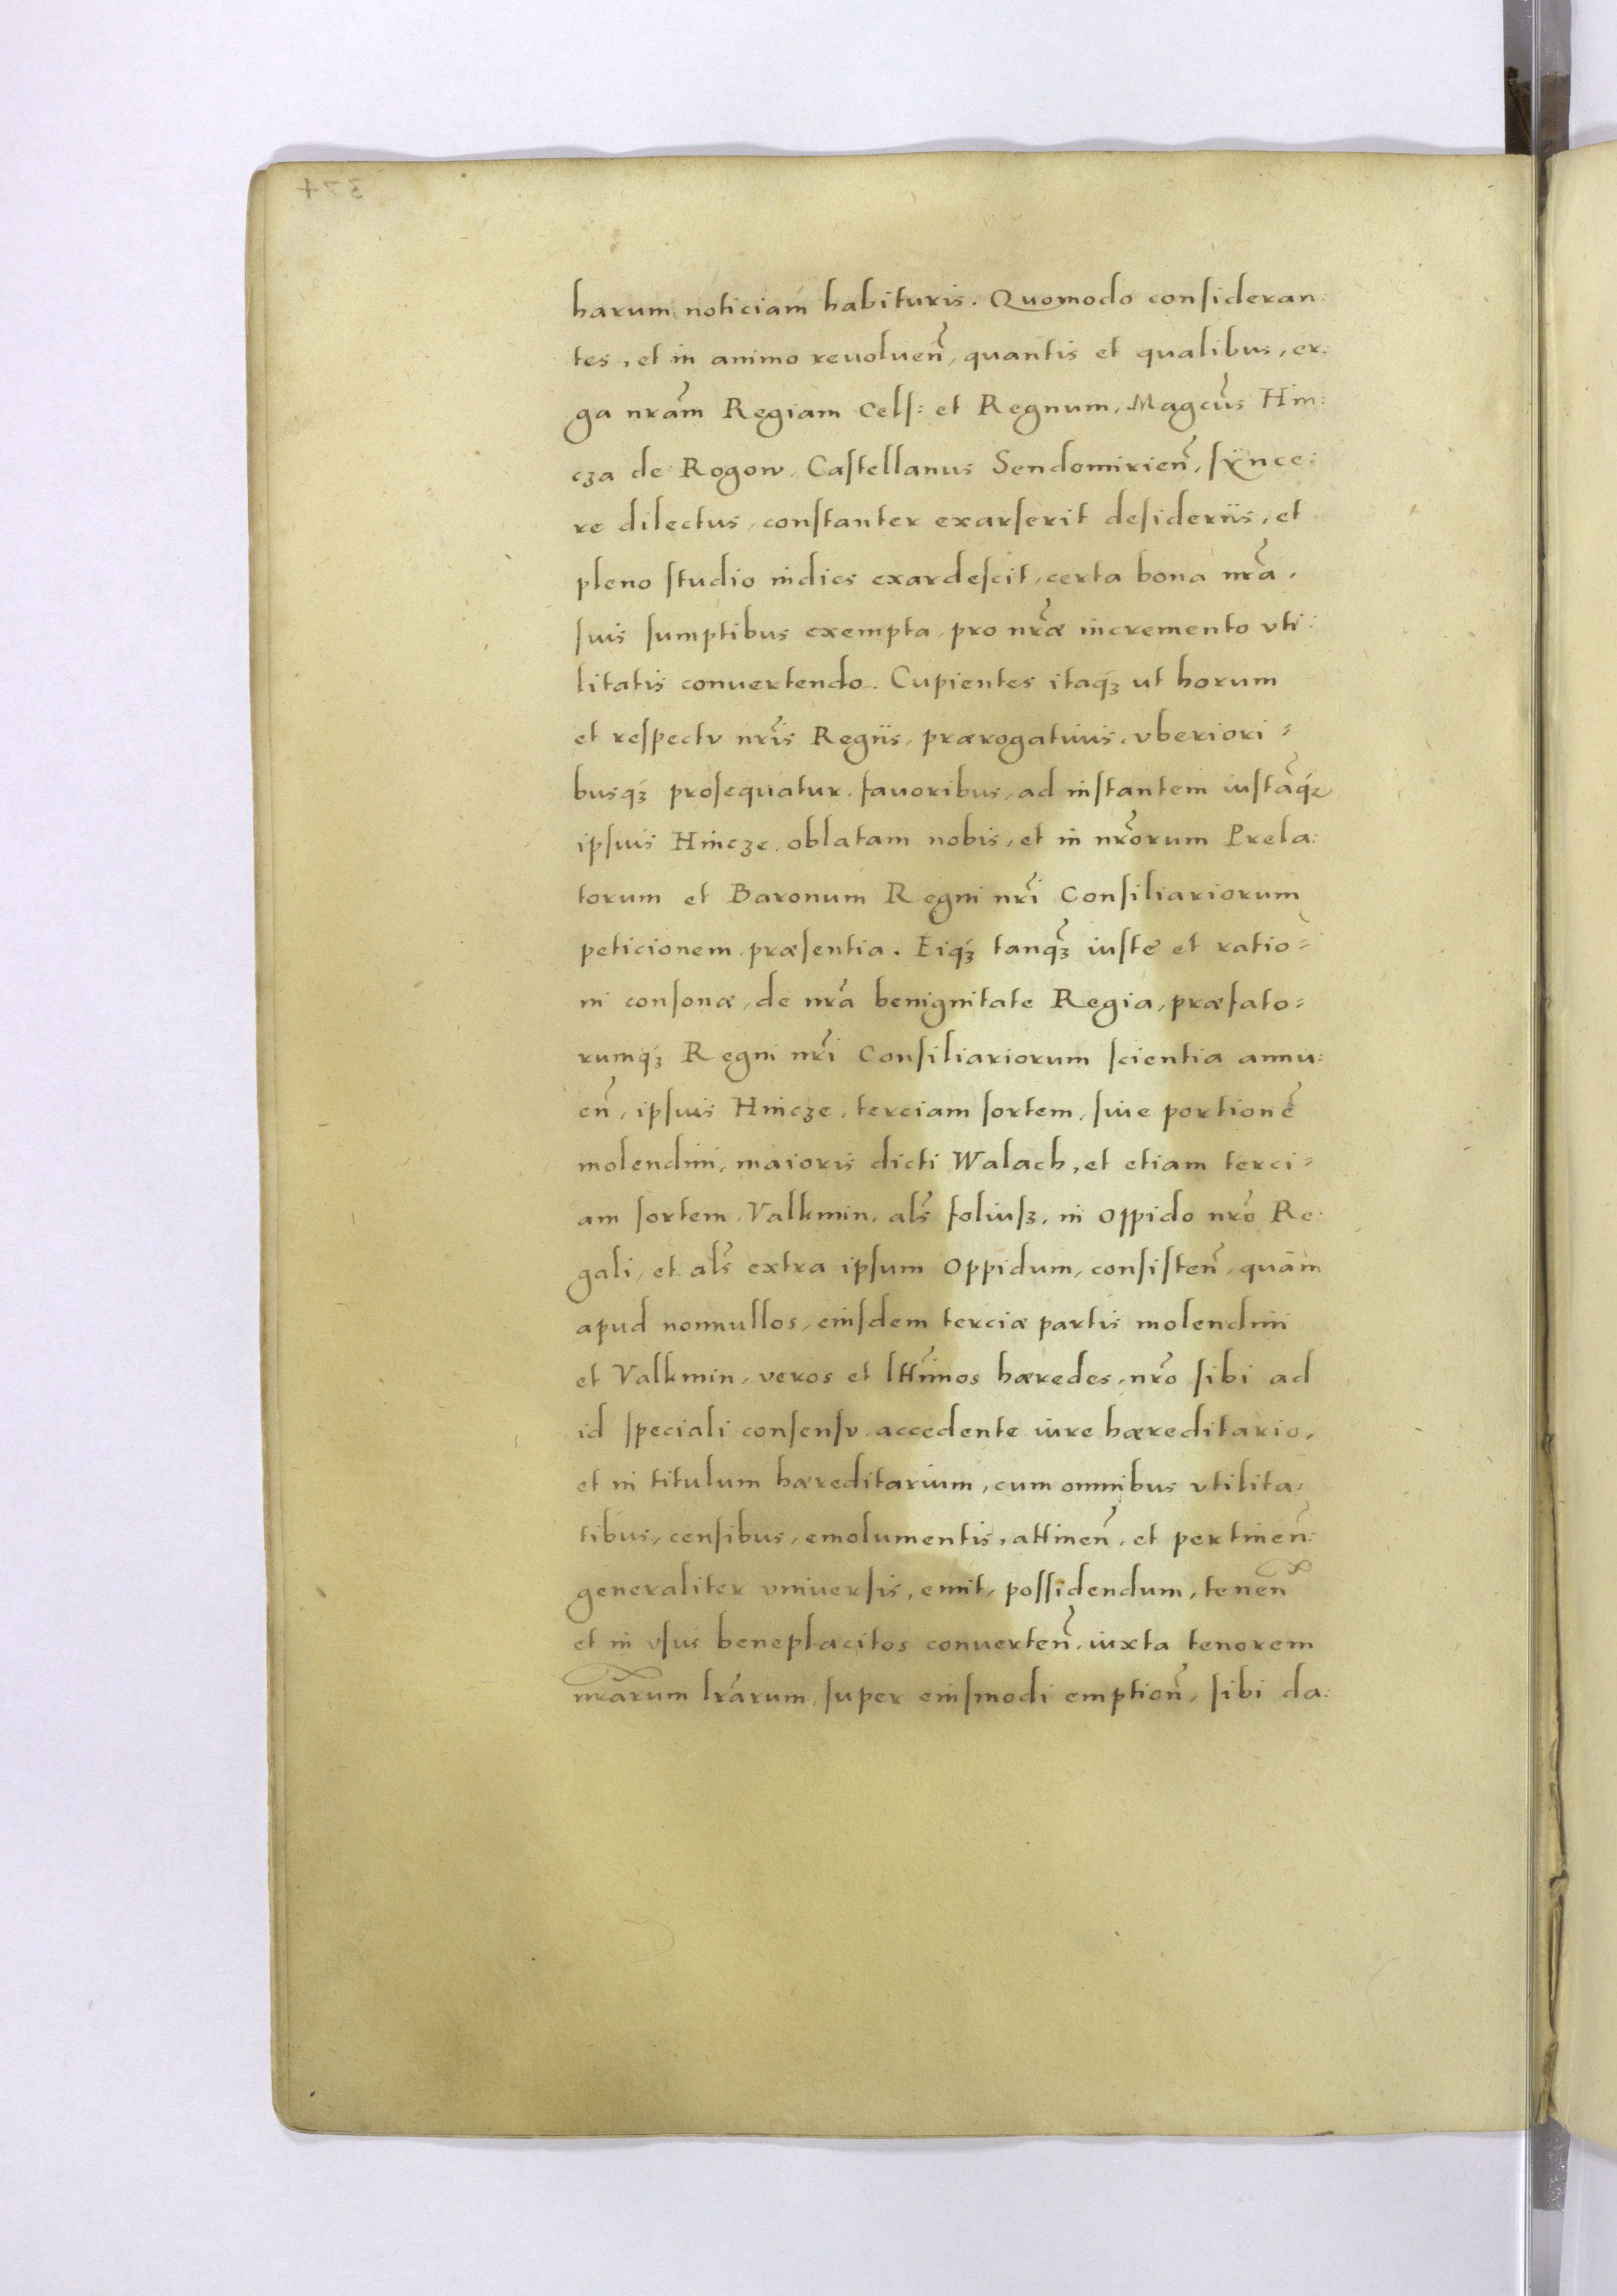 harum noticiam habituris. Quomodo consideran:
tes, et in animo reuoluen̄, quantis et qualibus, er:
ga nr̃am Regiam Cels: et Regnum, Magcũs Hin:
cza de Rogow, Castellanus Sendomirien̄, sÿnce:
re dilectus, constanter exarserit desiderijs, et
pleno studio indies exardescit, certa bona nr̃a,
suis sumptibus exempta, pro nr̃æ incremento vti:
litatis conuertendo. Cupientes itaqꝫ ut horum
et respectv nr̃is Regijs, prærogatiuis, vberiori=
busqꝫ prosequatur, fauoribus, ad instantem iustãqꝫ
ipsius Hincze, oblatam nobis, et in nr̃orum Prela:
torum et Baronum Regni nr̃i Consiliariorum
peticionem præsentia. Eiqꝫ tanqꝫ̃ iuste et ratio=
ni consonæ, de nr̃a benignitate Regia, præfato=
rumqꝫ Regni nr̃i Consiliariorum scientia annu:
en̄, ipsius Hincze, terciam sortem, siue portionẽ
molendini, maioris dicti Walach, et etiam terci=
am sortem, Valkmin, als̃ foliusz, in Oppido nr̃o Re:
gali, et als̃ extra ipsum Oppidum, consisten̄, quam
apud nonnullos, eiusdem terciæ partis molendini
et Valkmin, veros et lttĩmos hæredes, nr̃o sibi ad
id speciali consensv accedente iure hæreditario,
et in titulum hæreditarium, cum omnibus vtilita,
tibus, censibus, emolumentis, attinen̄, et pertinen̄:
generaliter vniuersis, emit, possidendum, tenen̄
et in vsus beneplacitos conuerten̄, iuxta tenorem
nr̃arum lr̃arum, super eiusmodi emption̄, sibi da: